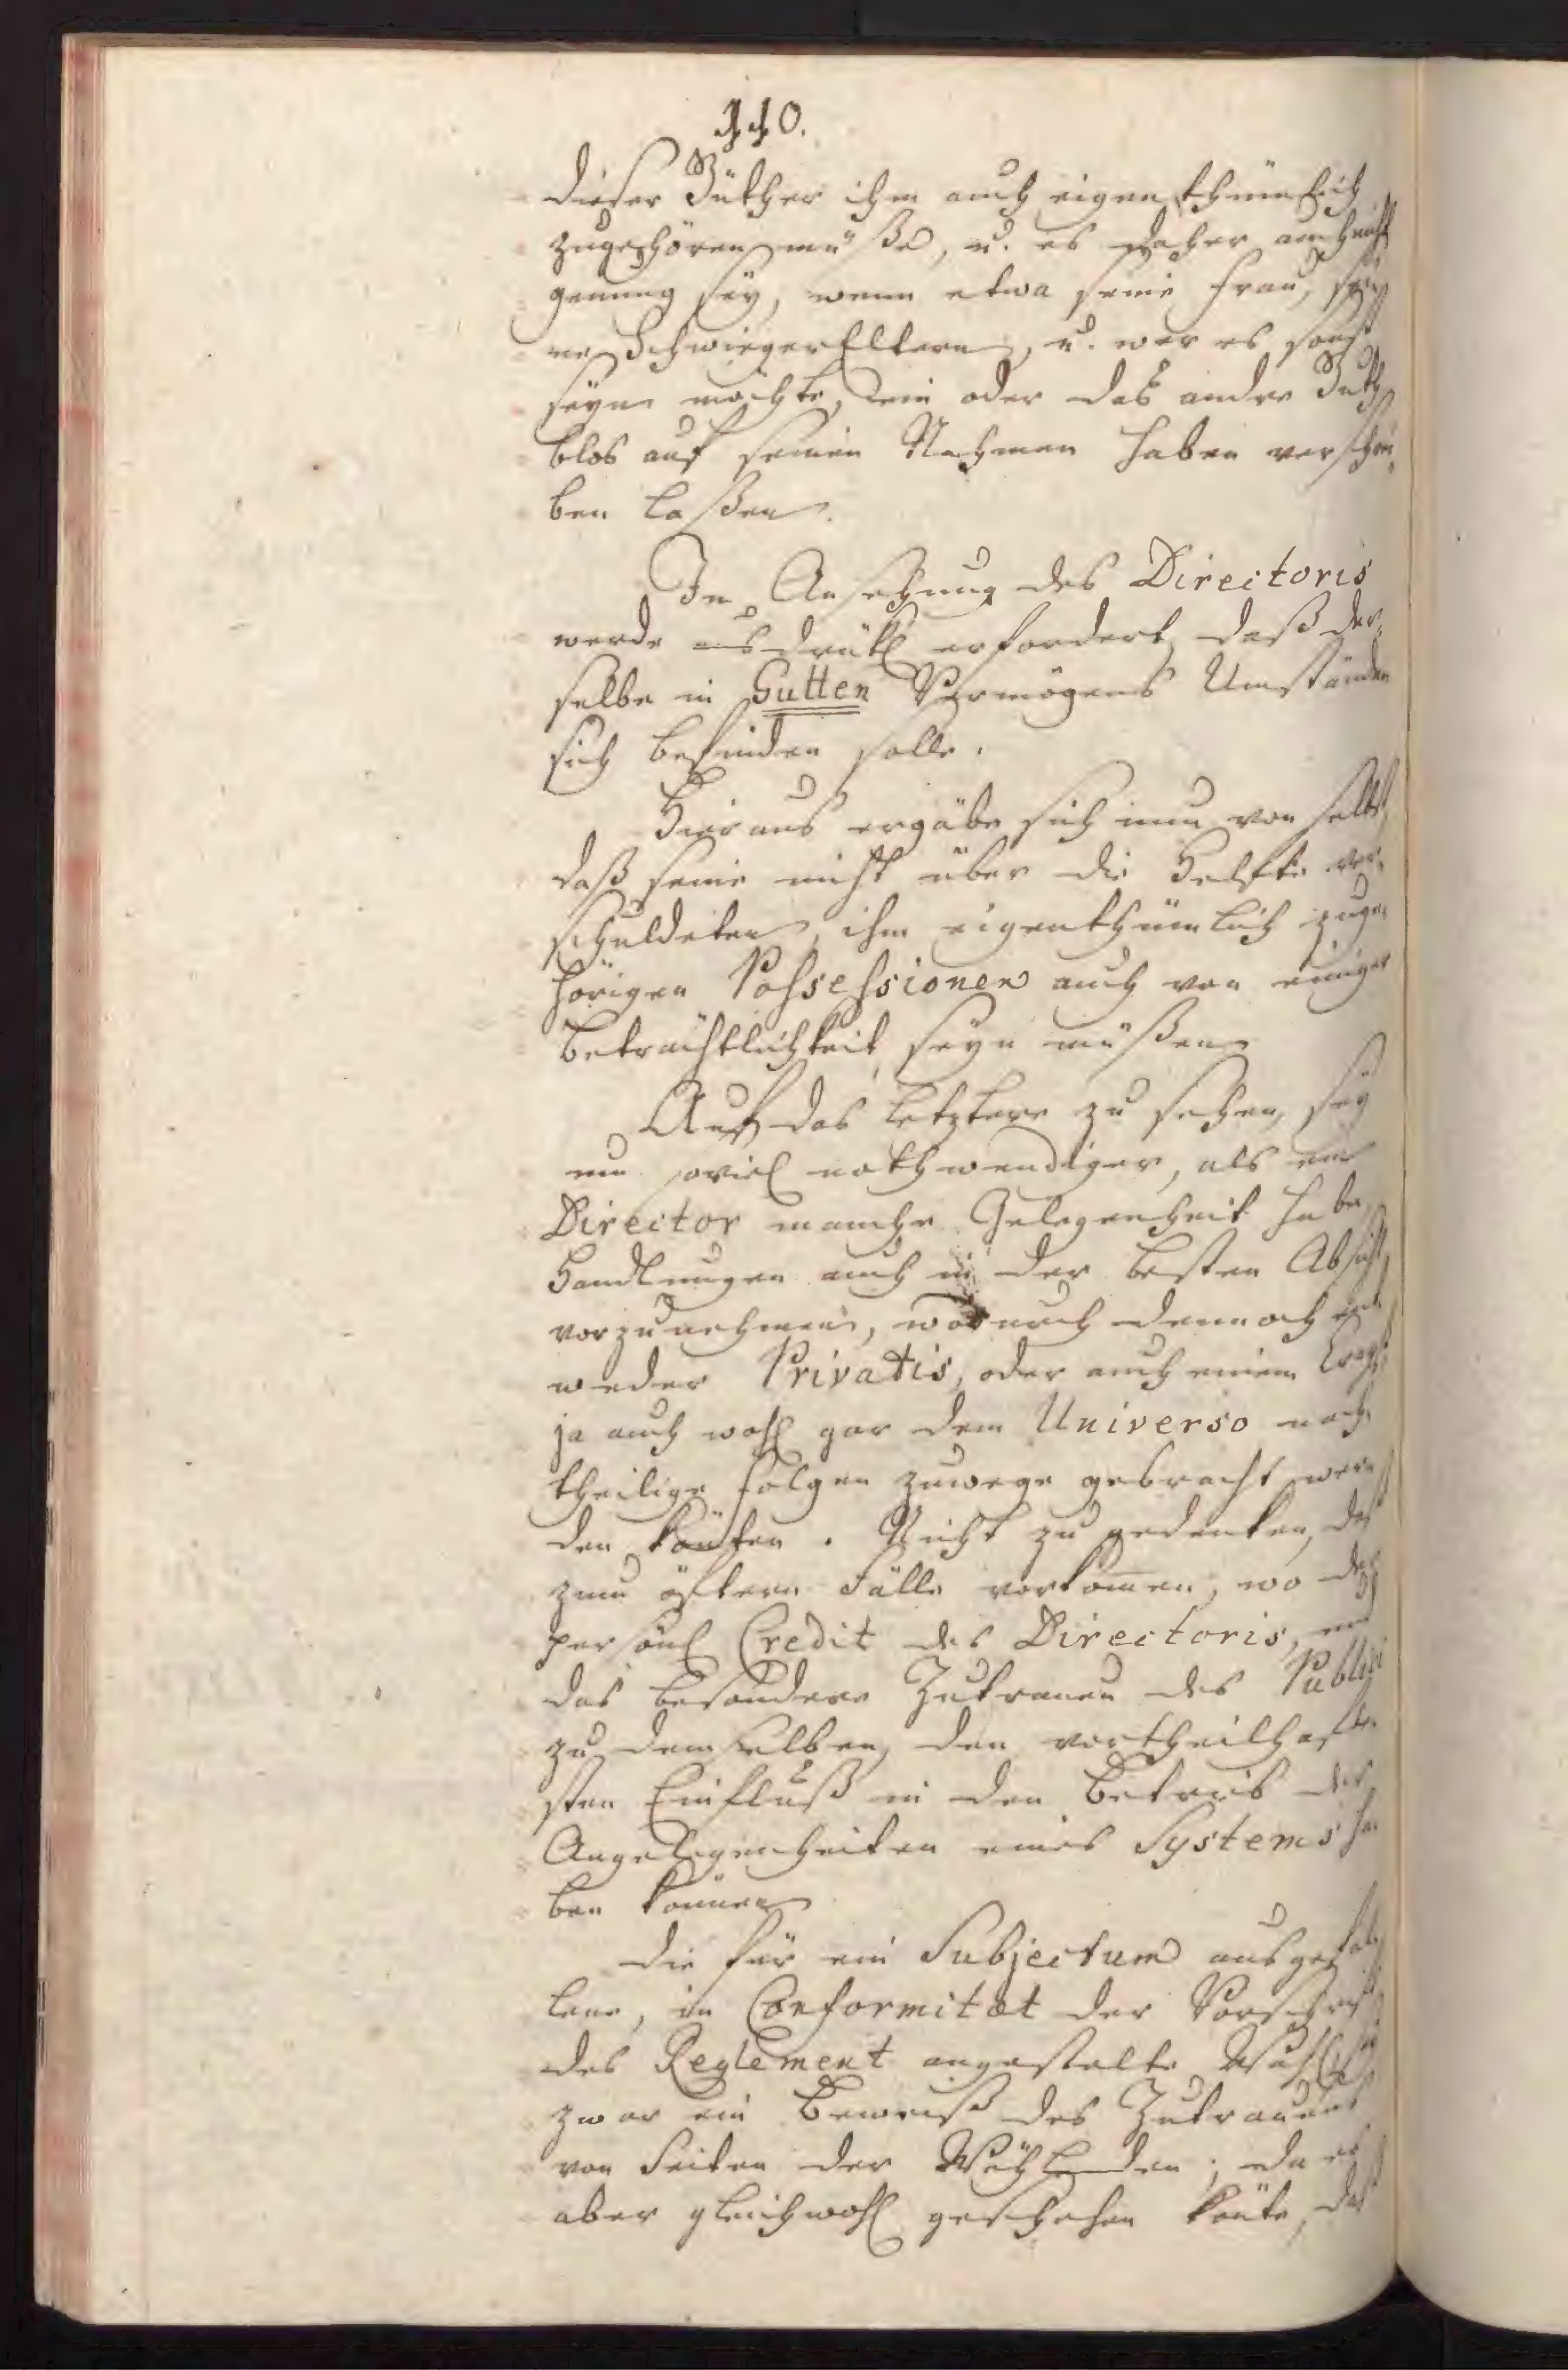 dieser Güther ihm auch eigenthümlich
zugehören müße, u. es daher auch nicht
genung sey, wenn etwa seine Frau, sei
ne SchwiegerEltern, u. wer es sonst
seyn möchte, ein oder das andre Guth
blos auf seinen Nahmen haben verschrei
ben laßen.
In Ansehung des Directoris
werde ausdrükl erfordert, daß der
selbe in Gutten Vermögens Umständen
sich befinden solle.
Hieraus ergäbe sich nun von selbst
daß seine nicht über die Helfte ver
schuldeten, ihm eigenthümlich zuge
hörigen Possessionen auch von einiger
Beträchtlichkeit seyn müßen
Auf das letztere zu sehen, sey
um soviel nothwendiger, als ein
Director manche Gelegenheit habe,
Handlungen auch in der besten Absicht
vorzunehmen, wodurch dennoch ent
weder Privatis, oder auch einem
ja auch wohl gar dem Universo nach
theilige Folgen zuwege gebracht wer
den könten. Nicht zu gedenken, daß
zum öftern Fälle vorkomen, wo der
persönl Credit des Directoris, und
das besondere Zutrauen des Publici
zu demselben, den vortheilhafte
sten Einfluß in den Betrieb der
Angelegenheiten eines Systems ha
ben könne
Die für ein Subjectum ausgefal
lene, in Conformitæt der Vorschrift
des Reglement angestelte Wahl sey
zwar ein Beweiß des Zutrauens
von Seiten der Wählenden; da es
aber gleichwohl geschehen könte, daß